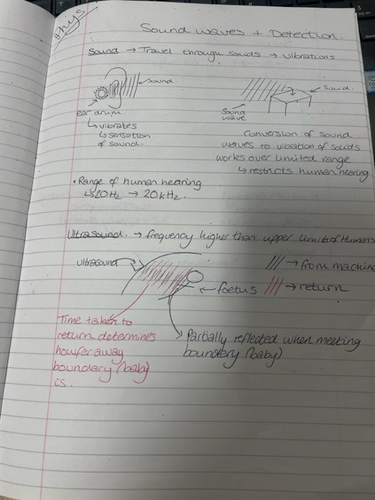 Phys
Sound waves + Detection
Sound → Travel through solids → vibrations
sound
Sound
ear drum
↳ vibrates
↳ sensation
of sound.
Sound
wave
Conversion of sound
waves to vibration of solids
works over limited range
↳ restricts human hearing
• Range of human hearing
↳ 20Hz → 20kHz.
Ultrasound. → frequency higher than upper limit of Humans
ultrasound
/// → from machine
← foetus
/// → return
Time taken to
return determines
how far away
boundary (baby)
is.
Partially reflected when meeting
boundary (baby)